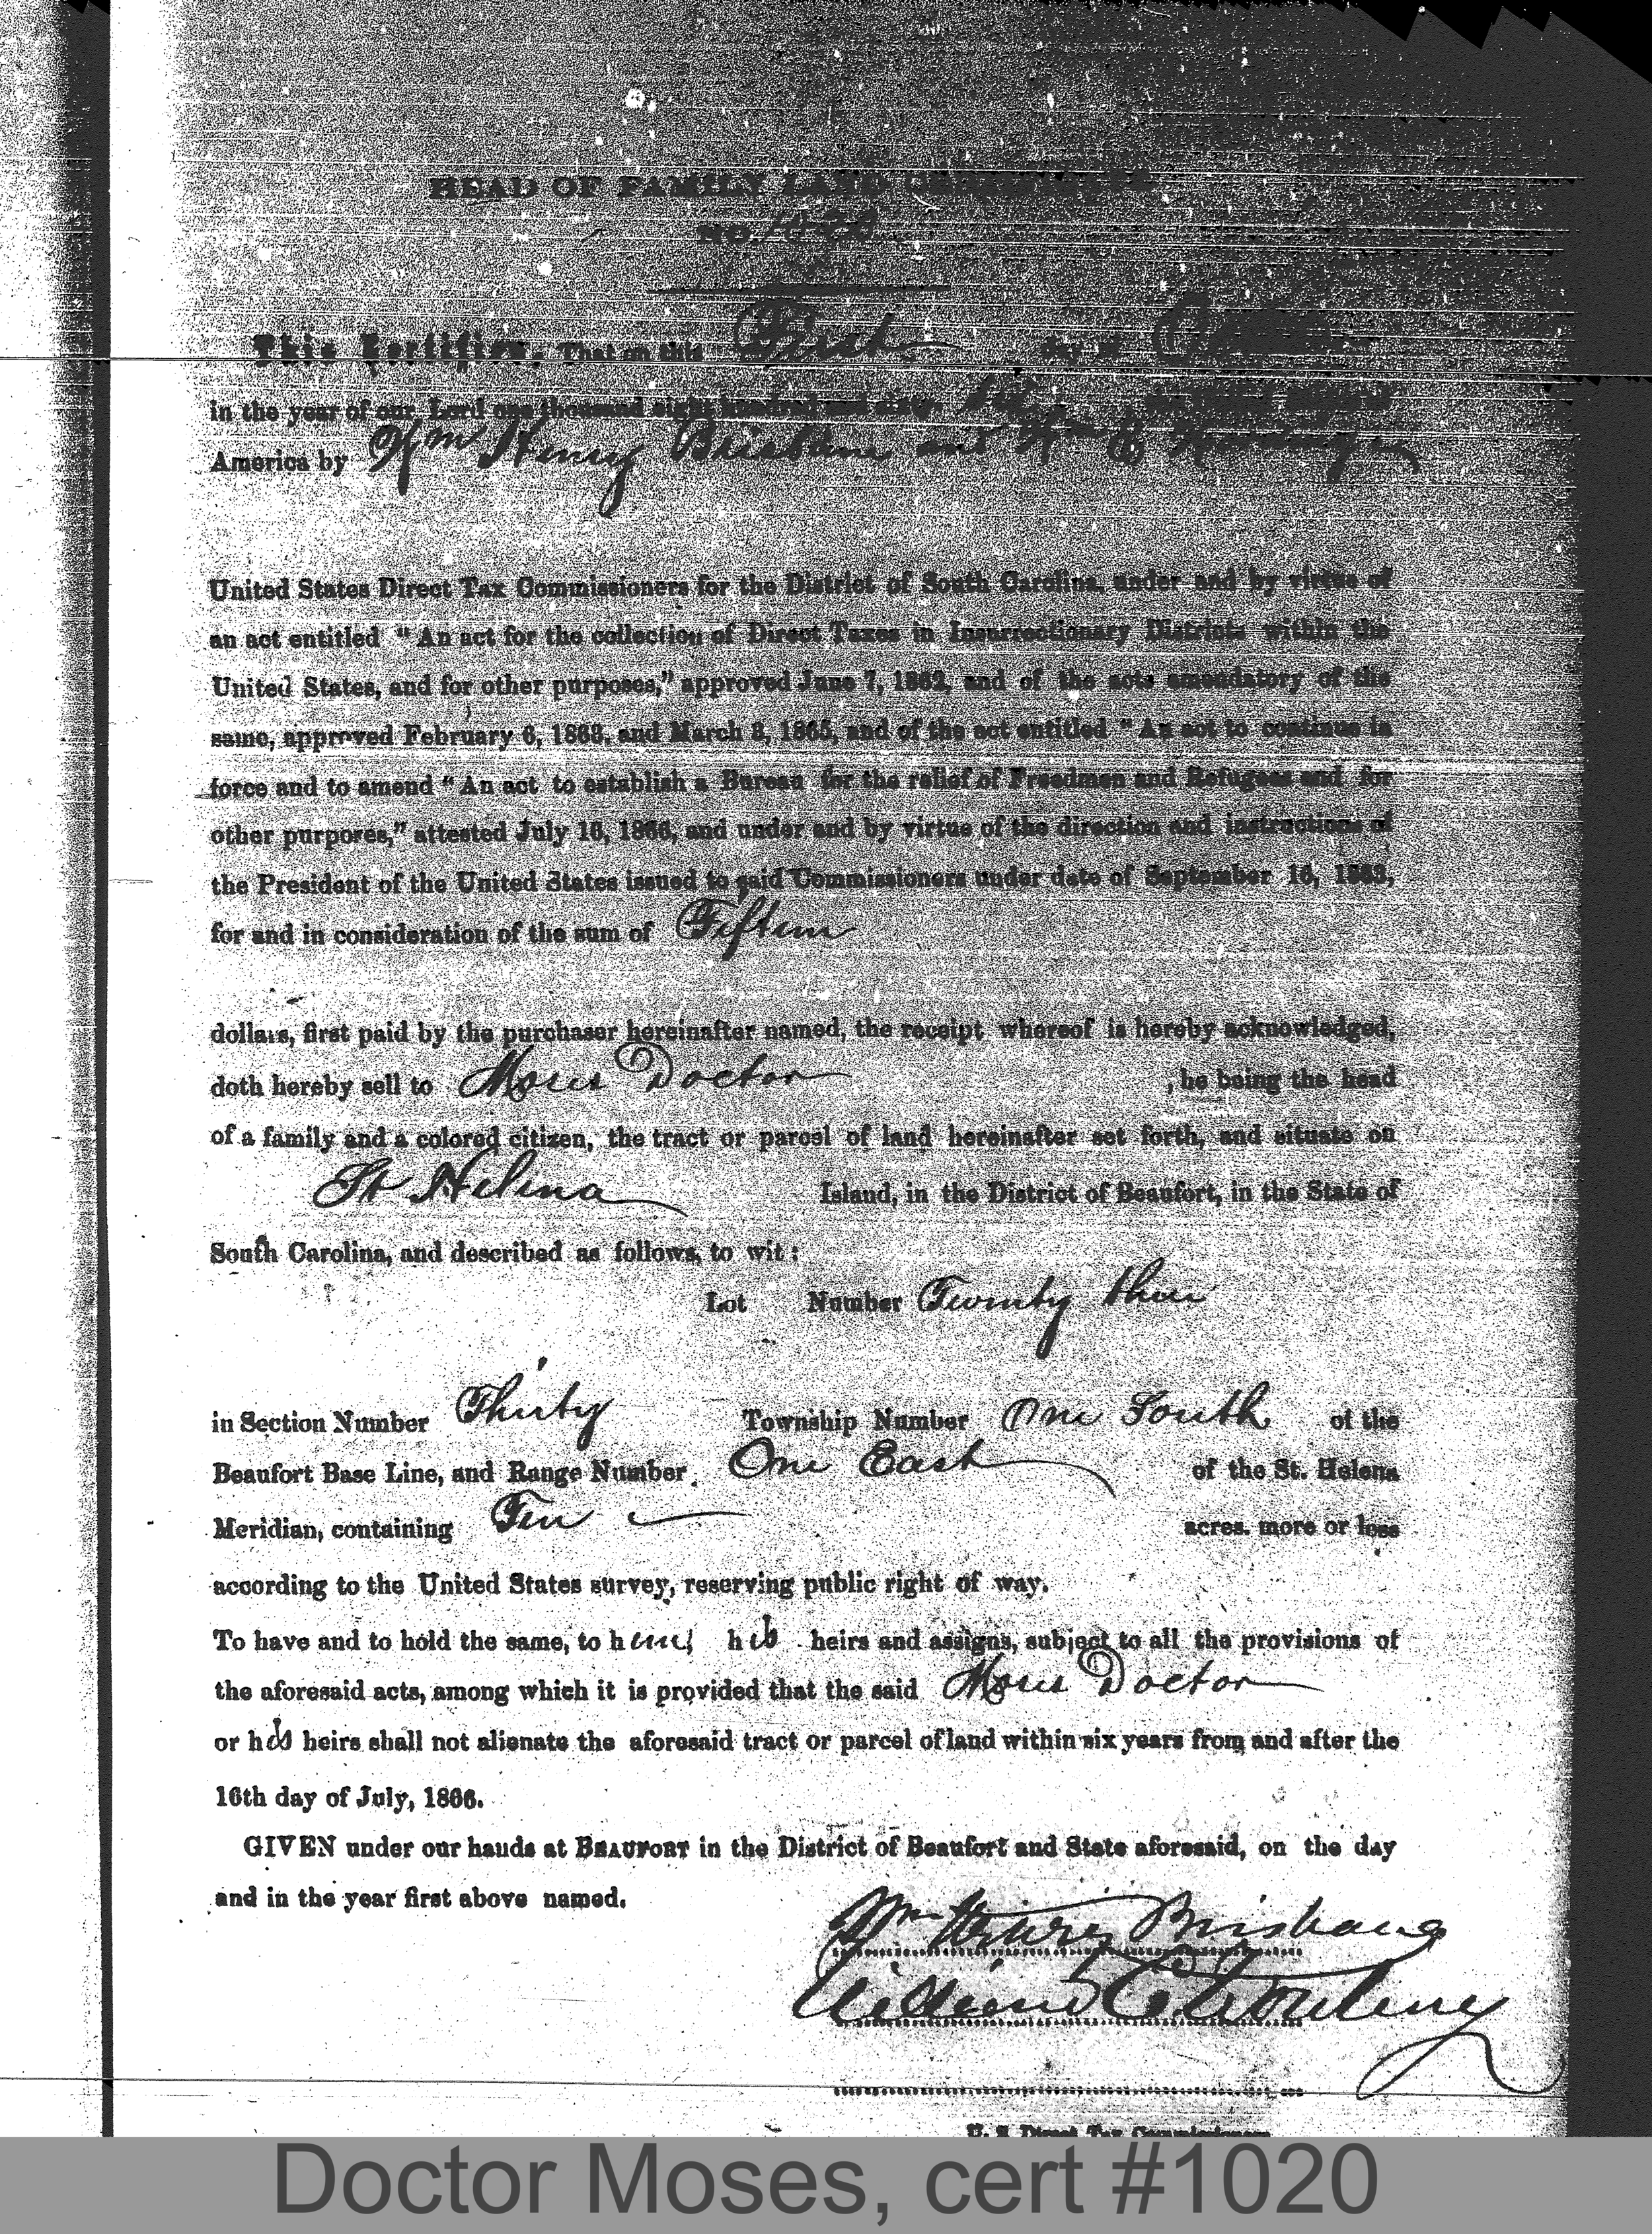 HEAD OF FAMILY LAND CERTIFICATE
NO. 1020
This Certifies, That on this First day of
in the year of our Lord one thousand eight hundred and sixty
America by Wm Henry Brisbane and Wm E Wording
United States Direct Tax Commissioners for the District of South Carolina, under and by virtue of
an act entitled "An act for the collection of Direct Taxes in Insurrectionary Districts within the
United States, and for other purposes," approved June 7, 1862, and of the acts amendatory of the
same, approved February 6, 1863, and March 3, 1865, and of the act entitled "An act to continue in
force and to amend "An act to establish a Bureau for the relief of Freedmen and Refugees and for
other purposes," attested July 16, 1866, and under and by virtue of the direction and instructions of
the President of the United States issued to said Commissioners under date of September 16, 1863,
for and in consideration of the sum of Fifteen
dollars, first paid by the purchaser hereinafter named, the receipt whereof is hereby acknowledged,
doth hereby sell to Moses Doctor , he being the head
of a family and a colored citizen, the tract or parcel of land hereinafter set forth, and situate on
St Helena Island, in the District of Beaufort, in the State of
South Carolina, and described as follows, to wit:
Lot Number Twenty three
in Section Number Thirty Township Number One South of the
Beaufort Base Line, and Range Number One East of the St. Helena
Meridian, containing Ten acres. more or less
according to the United States survey, reserving public right of way.
To have and to hold the same, to him, his heirs and assigns, subject to all the provisions of
the aforesaid acts, among which it is provided that the said Moses Doctor
or his heirs shall not alienate the aforesaid tract or parcel of land within six years from and after the
16th day of July, 1866.
GIVEN under our hands at BEAUFORT in the District of Beaufort and State aforesaid, on the day
and in the year first above named.
Wm Henry Brisbane
William E. Wording
U. S. Direct Tax Commissioners
Doctor Moses, cert #1020